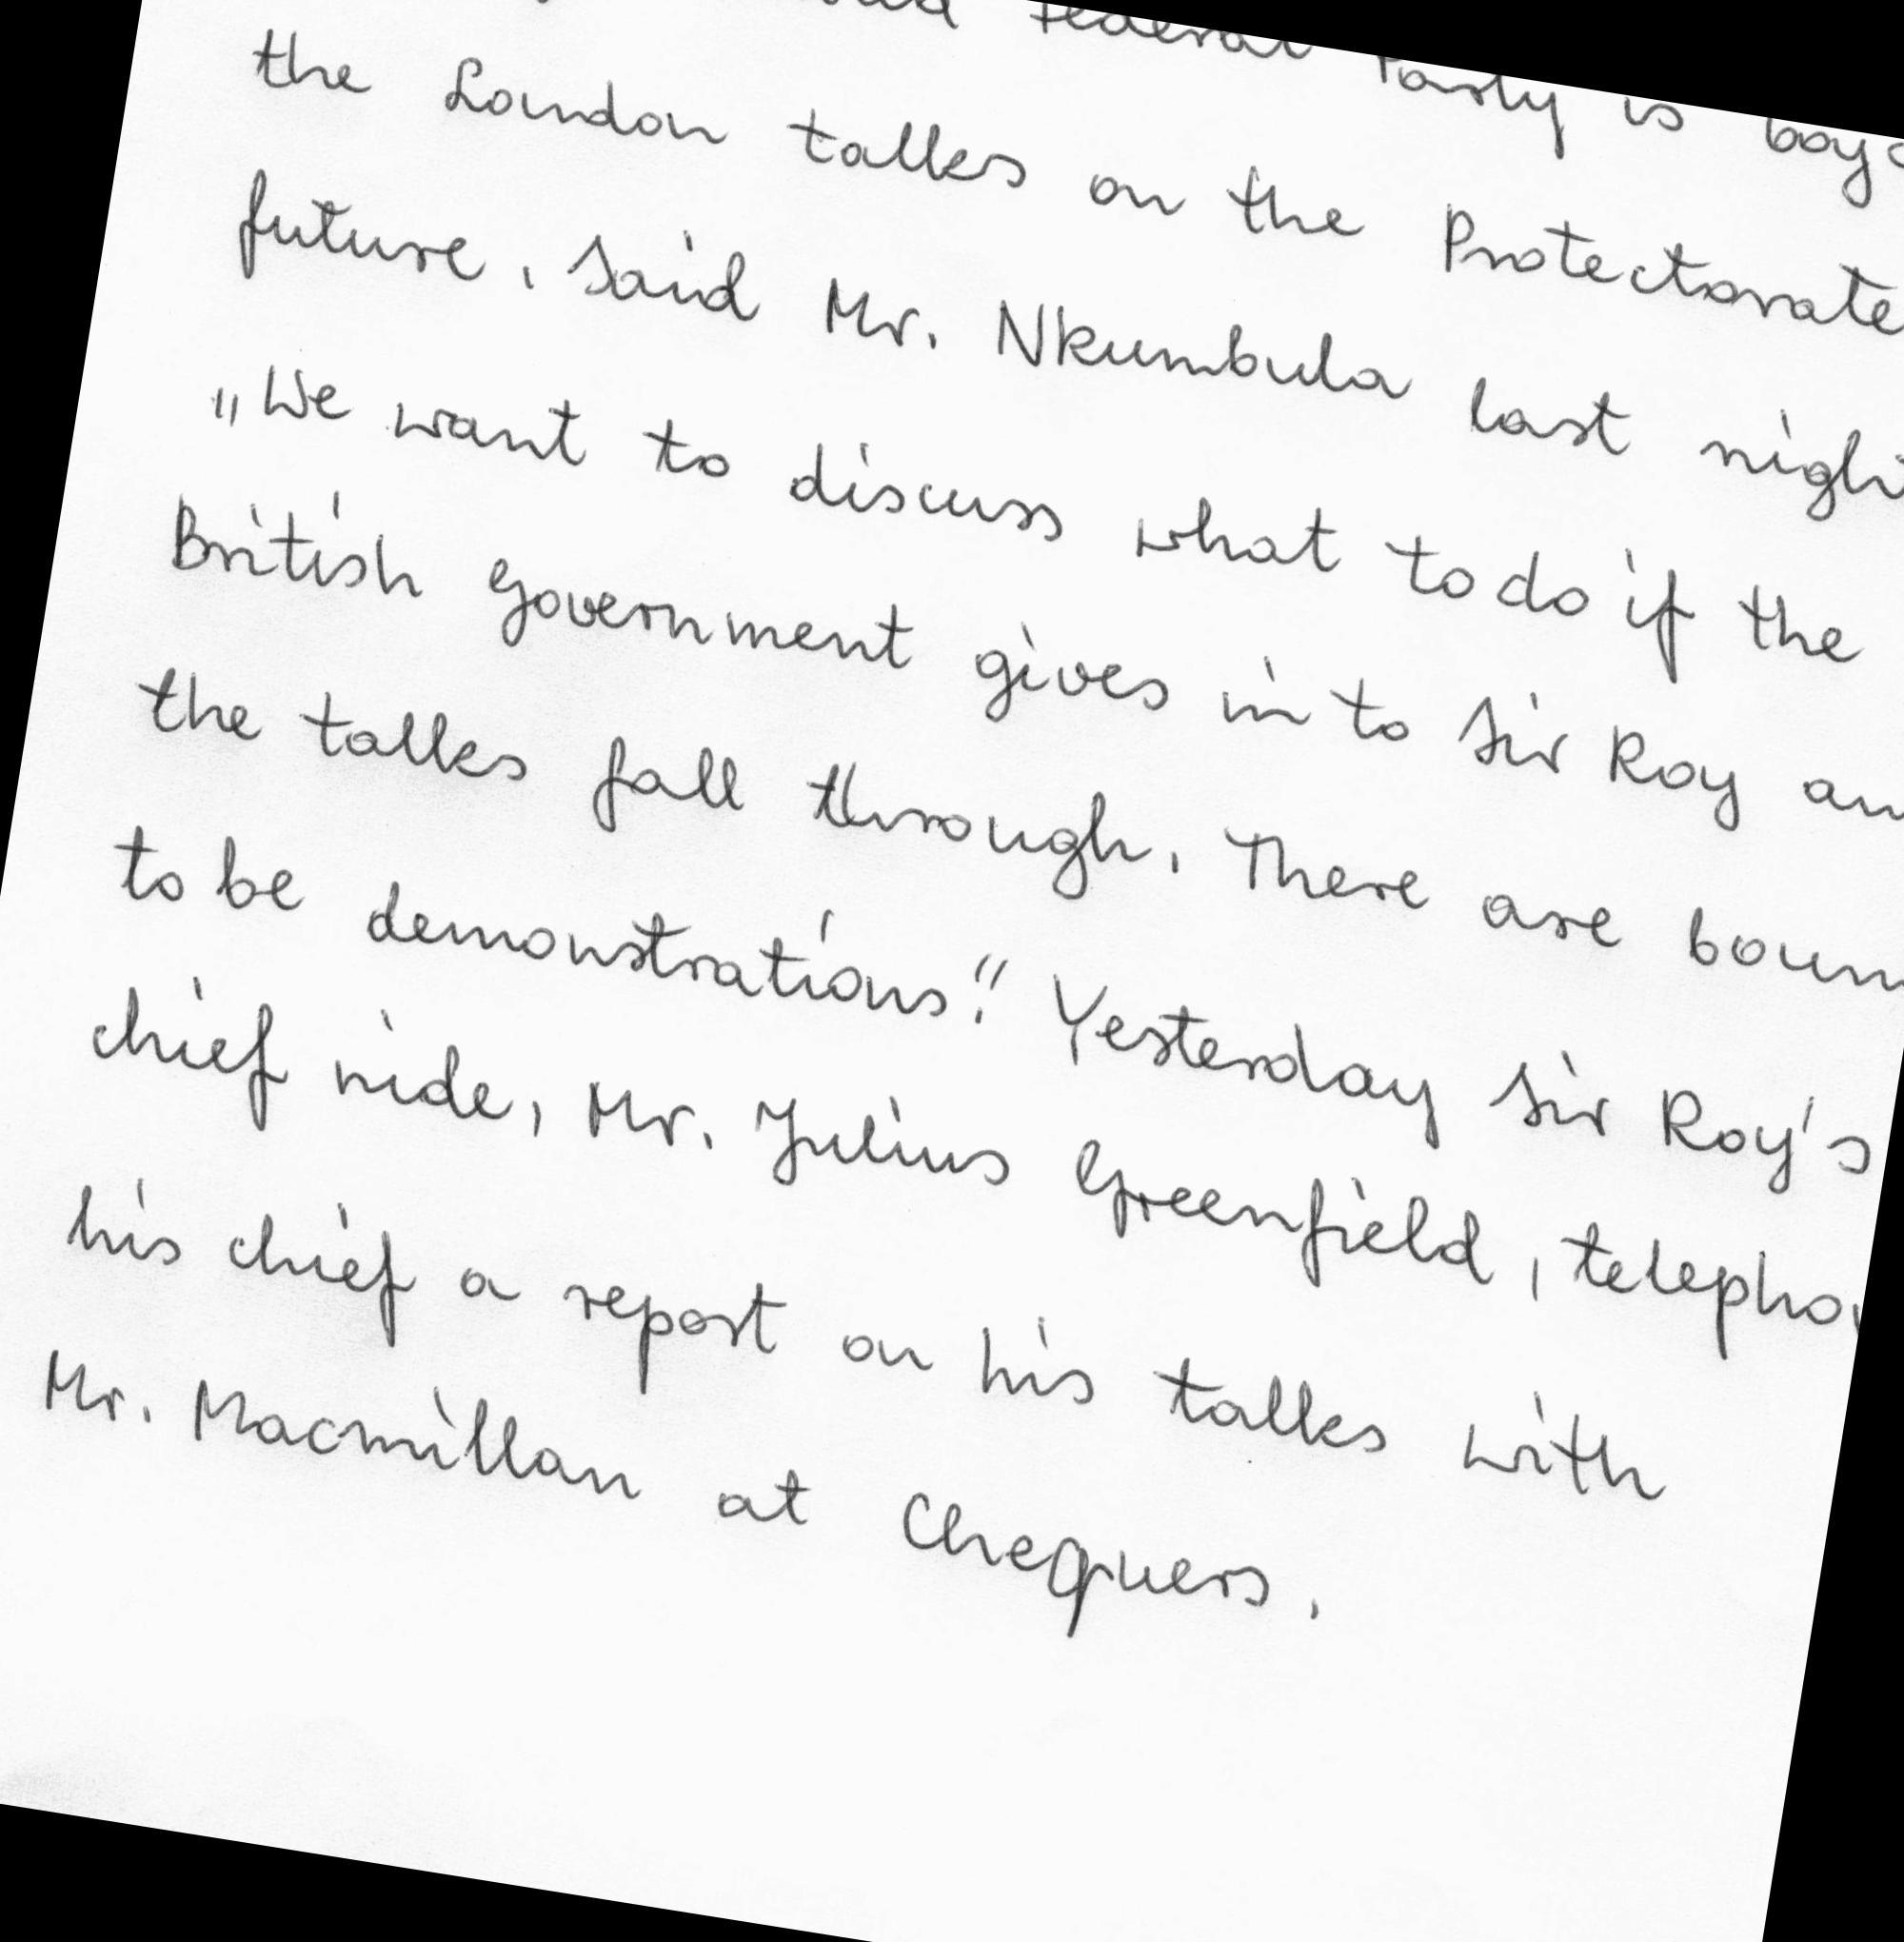 Federal Party is
the London talks on the Protectorate
future, said Mr. Nkumbula last
"We want to discuss what to do if the
British government gives in to Sir Roy
the talks fall through. There are
to be demonstrations." Yesterday Sir Roy's
chief nide, Mr. Julius Greenfield,
his chief a report on his talks with
Mr. Macmillan at Chequers.